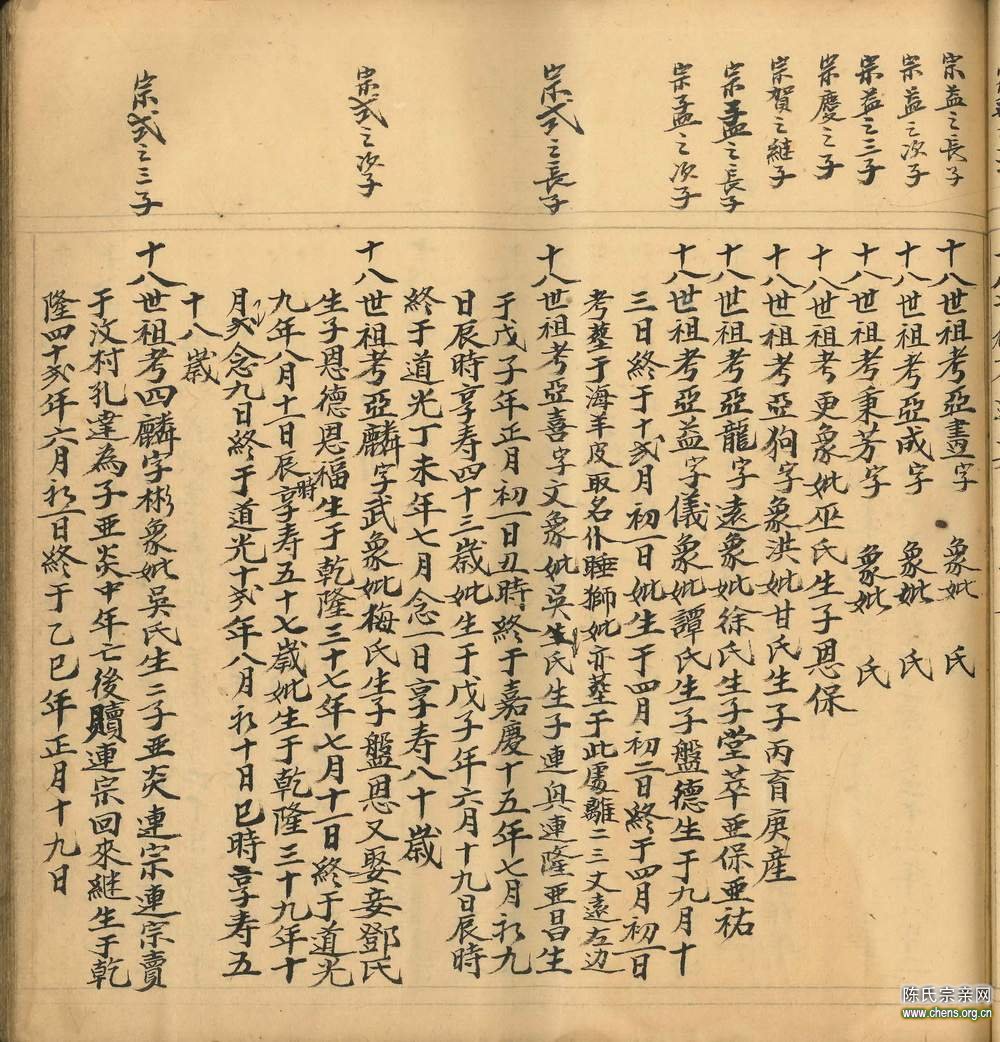 宗益之長子
宗益之次子
宗益之三子
宗慶之子
宗賀之継子
宗孟之長子
宗孟之次子
宗弍之長子
宗弍之次子
宗弍之三子
十八世祖考亞晝字 象妣 氏
十八世祖考亞成字 象妣 氏
十八世祖考秉芳字 象妣 氏
十八世祖考更象妣巫氏生子恩保
十八世祖考亞狗字象洪妣甘氏生子丙育庚産
十八世祖考亞龍字遠象妣徐氏生子堂萃亜保亜祐
十八世祖考亞益字儀象妣譚氏生子盤德生于九月十
三日終于十弍月初一日妣生于四月初二日終于四月初一日
考塟于海羊皮取名仆睡獅妣亦塟于此處離二三丈遠左边
十八世祖考亞喜字文象妣吳氏生子連興連隆亜昌生
于戊子年正月初一日丑時終于嘉慶十五年七月初九
日辰時享寿四十三歲妣生于戊子年六月十九日辰時
終于道光丁未年七月念一日享寿八十歲
十八世祖考亞麟字武象妣梅氏生子盤恩又娶妾鄧氏
生子恩德恩福生于乾隆三十七年七月十一日終于道光
九年八月十一日辰時享寿五十七歲妣生于乾隆三十九年十
月念九日終于道光十弍年八月初十日巳時享寿五
十八歲
十八世祖考四麟字彬象妣吳氏生二子亜炎連宗連宗賣
于汶村孔達為子亜炎中年亡後贖連宗回來継生于乾
隆四十弍年六月初一日終于乙巳年正月十九日
陈氏宗亲网
www.chens.org.cn